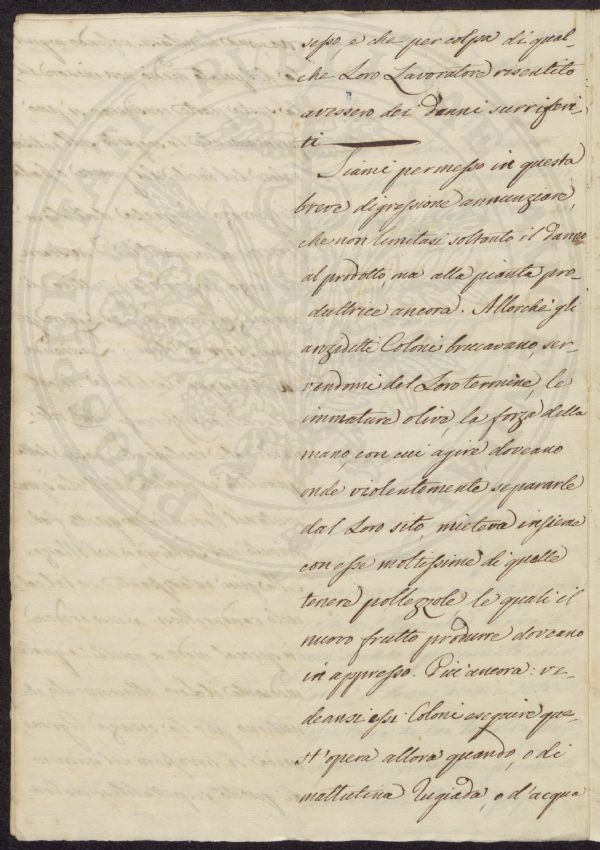 sesso, e che per colpa di qual-
che Loro Lavoratore risentito
avessero dei Danni surriferi-
ti
Siami permesso in questa
breve digressione annunziare,
che non limitasi soltanto il Danno
al prodotto, ma alla pianta pro-
duttrice ancora. Allorché gli
anzidetti Coloni brucavano, ser-
vendomi del Loro termine, le
immature olive, la forza della
mano, con cui agire doveano
onde violentemente separarle
dal Loro sito, mieteva insieme
con esse moltissime di quelle
tenere pollezzole le quali il
nuovo frutto produrre doveano
in appresso. Più ancora: ve-
deansi essi Coloni eseguire que-
st'opera allora quando, o di
mattutina rugiada, o d'acqua